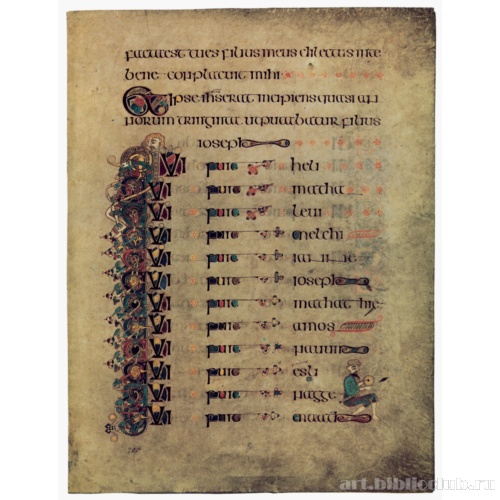 factaest tues filius meus dilectus inte
bene conplacuit mihi
Et ipse ihs erat incipiens quasi an
norum triginta utputabatur filius
ioseph
Qui fuit heli
Qui fuit matha
Qui fuit leui
Qui fuit melchi
Qui fuit
Qui fuit ioseph
Qui fuit mathathie
Qui fuit amos
Qui fuit nauum
Qui fuit esli
Qui fuit nagge
Qui fuit maath
art.biblioclub.ru